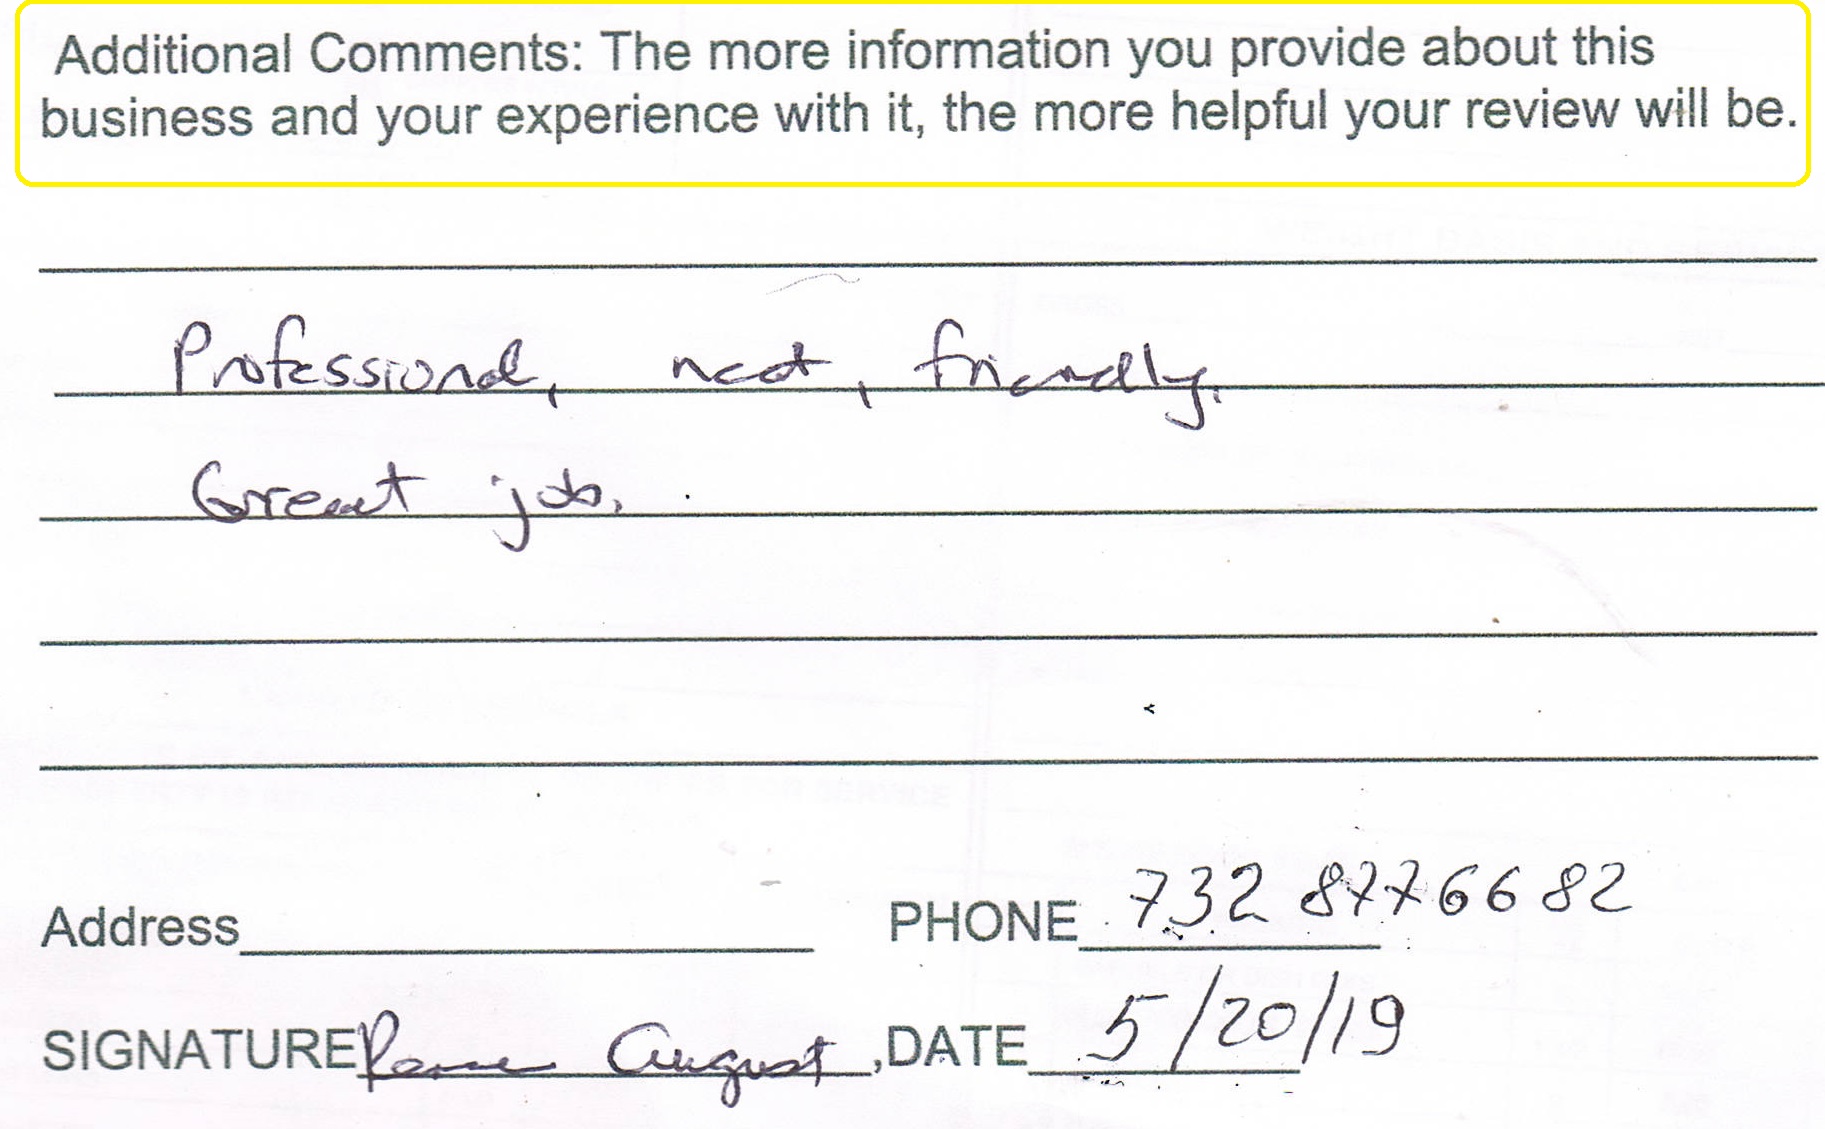 Additional Comments: The more information you provide about this
business and your experience with it, the more helpful your review will be.
Professional, neat, friendly.
Great job.
Address
PHONE 732 8776682
SIGNATURE August, DATE 5/20/19